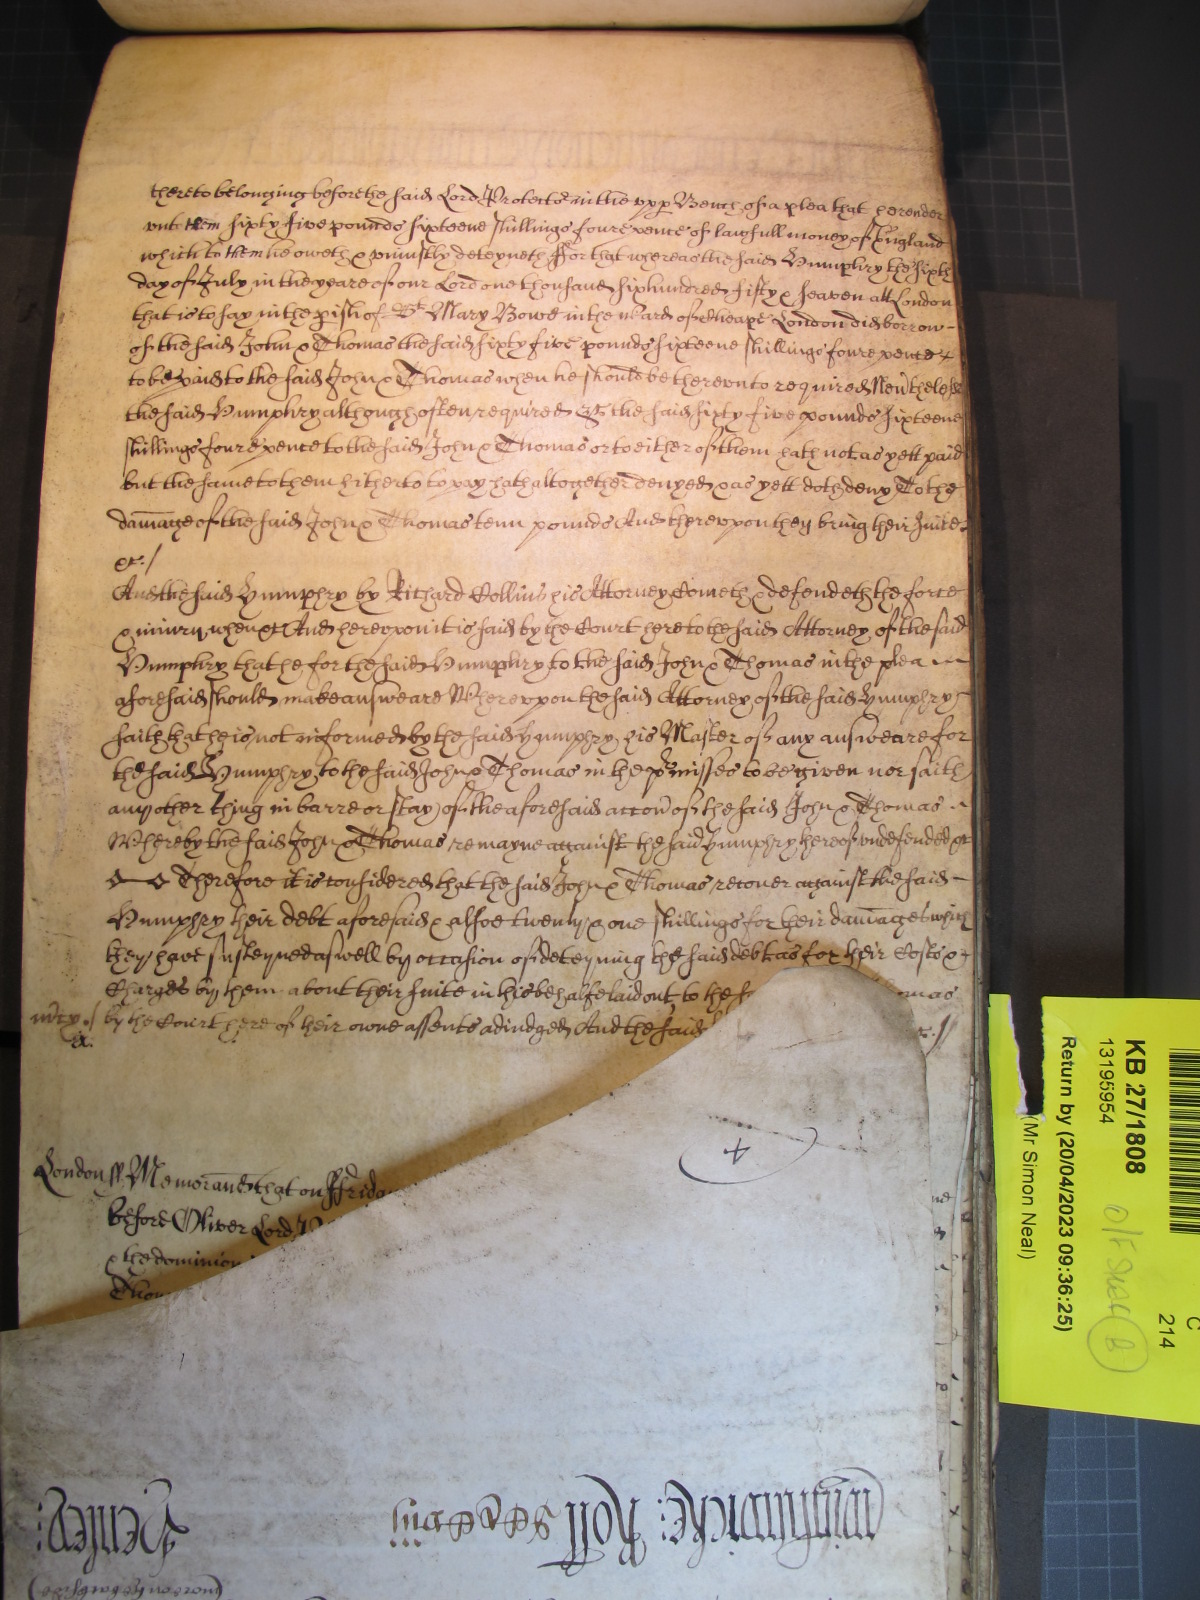 thereto belonging before the said Lord Protector in the vpp Bench of a plea that he render
vnt them sixty five pounds sixteene shillings foure pence of lawfull money of England
which to them he oweth & vniustly deteyneth ffor that whereas the said Humphry the sixth
day of July in the yeare of our Lord one thousand six hundred fifty & seaven att London
that is to say in the pish of St Mary Bowe in the Ward of Cheape London did borrow
of the said John & Thomas the said sixty five pounds sixteene shillings foure pence
to be paid to the said John & Thomas when he should be therevnto required Neuthelesse
the said Humphry although often required &c the said sixty five pounds sixteene
shillings foure pence to the said John & Thomas or to either of them hath not as yett paid
but the same to them hitherto to pay hath altogether denyed & as yett doth deny To the
damage of the said John & Thomas tenn pounds And therevpon they bring their suite
&c /
And the said Humphry by Richard Collins his Attorney Cometh & defendeth the force
& iniury when &c And herevpon it is said by the Court here to the said Attorney of the said
Humphry that he for the said Humphry to the said John & Thomas in the plea
aforesaid should make answeare Wherevpon the said Attorney of the said Humphry
saith that he is not informed by the said Humphry his Master of any answeare for
the said Humphry to the said John & Thomas in the pmisses to be given nor saith
any other thing in barre or stay of the aforesaid accon of the said John & Thomas
Whereby the said John & Thomas remayne against the said Humphry hereof vndefended &c
Therefore it is considered that the said John & Thomas recouer against the said
Humphry their debt aforesaid & alsoe twenty & one shillings for their damages which
they have susteyned aswell by occasion of deteyning the said debt as for their Costs &
Charges by them about their suite in this behalfe laid out to the s omas
mcy / by the Court here of their owne assents adiudged And the said &c //
&c
London ss Memorand that on ffrida
before Oliver Lord P
& the dominion
Thom
KB 27/1808
13195954
Return by (20/04/2023 09:36:25)
(Mr Simon Neal)
C
214
O/F Shelf (B)
Wightwicke: Roll
Henley:
(more on the backside)